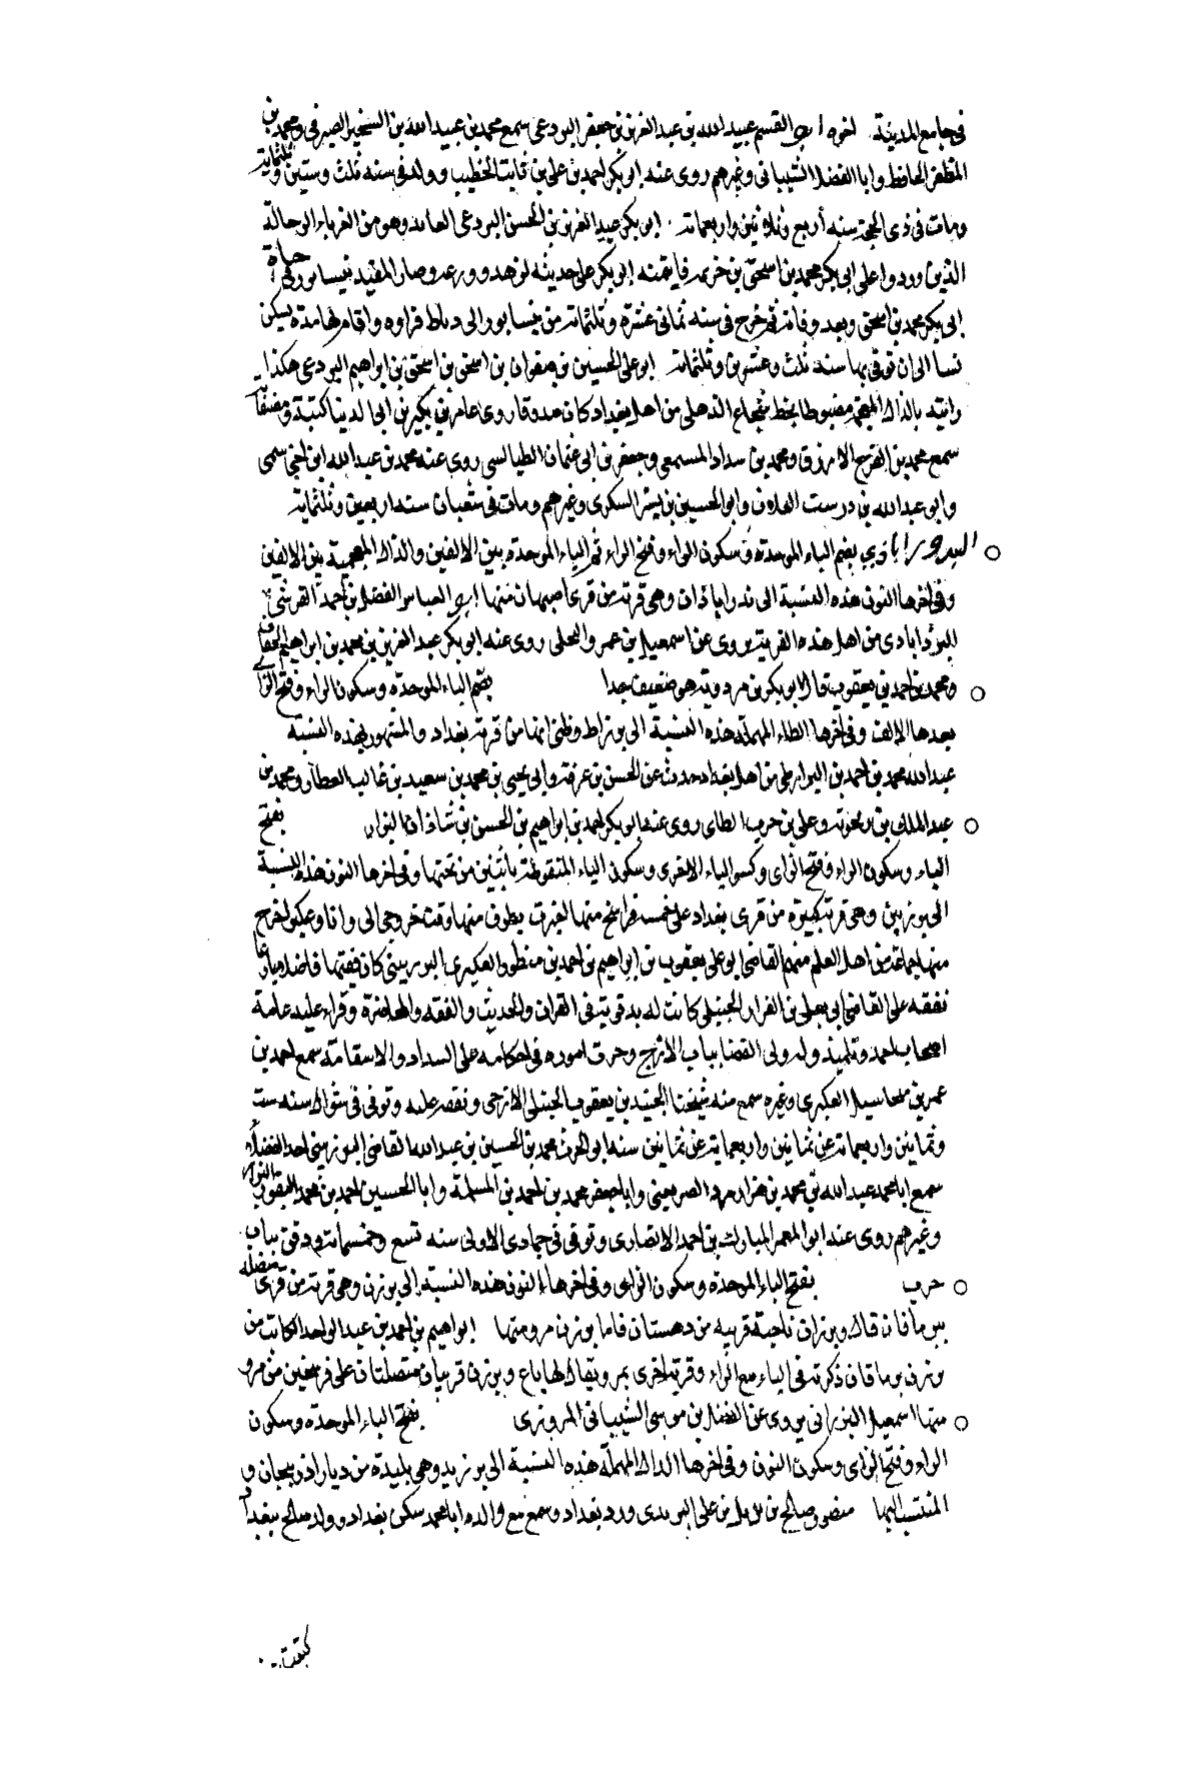 في جامع المدينة اخوه ابو القسم عبيد الله بن عبد العزيز بن جعفر البردعى سمع محمد بن عبيد الله بن الشخير الصيرفى ومحمد بن
المظفر الحافظ وابا الفضل الشيبانى وغيرهم روى عنه ابو بكر احمد بن على بن ثابت الخطيب وولد فى سنه ثلث وستين وثلثمايه
ومات فى ذى الحجة سنه أربع وثلاثين واربعمايه ابو بكر عبد العزيز بن الحسن البردعى العابد وهو من الغرباء الرحالة
الذين وردوا على ابى بكر محمد بن اسحق بن خزيمه فايتمنه ابو بكر على حديثه لزهده وورعه وصار المفيد بنيسابور فى حياة
ابى بكر محمد بن اسحق وبعد وفاته ثم خرج فى سنه ثمانى عشرة وثلثمايه من نيسابور الى رباط فراوه واقام بها مدة يسكن
نسا الى ان توفى بها سنه ثلث وعشرين وثلثمايه ابو على الحسين بن صفوان بن اسحق بن اسحق بن ابراهيم البردعى هكذا
رايته بالذال المعجمه مضبوطا بخط شجاع الذهلى من اهل بغداد كان صدوقا روى عامر بن بكير بن ابى الدنيا كتبه ومصنفاته
سمع محمد بن الفرج الازرق ومحمد بن سداد المسمعى وجعفر بن ابى عثمان الطيالسى روى عنه محمد بن عبد الله ابن اخى سمى
وابو عبد الله بن درست العلاف وابو الحسين بن بشر السكرى وغيرهم ومات فى شعبان سنه اربعين وثلثمايه
بضم الباء الموحدة وسكون الراء وفتح الراء ثم الباء الموحدة بين الالفين والذال المعجمة بين الالفين
وفى اخرها النون هذه النسبة الى وهى قرية من قرى اصبهان منها ابو العباس الفضل بن احمد القرشى
من اهل هذه القرية يروى عن اسمعيل بن عمرو البجلى روى عنه ابو بكر عبد العزيز بن محمد بن ابراهيم الخفاف
ومحمد بن احمد بن يعقوب قال ابو بكر بن مردويه هو ضعيف جدا بضم الباء الموحدة وسكون الراء وفتح الزاى
بعدها الالف وفى اخرها الطاء المهملة هذه النسبة الى بزراط وظنى انها من قرية بغداد والمشهور بهذه النسبة
عبد الله محمد بن احمد بن من اهل بغداد حدث عن الحسن بن عرفة وابى يحيى بن محمد بن سعيد بن غالب العطار ومحمد بن
عبد الملك بن زنجويه وعلى بن حرب الطاى روى عنه ابو بكر احمد بن ابراهيم بن الحسن بن شاذان البزاز بفتح
الباء وسكون الراء وفتح الزاى وكسر الباء الاخرى وسكون الياء المنقوطة باثنين من تحتها وفى اخرها النون هذه النسبة
الى بوزبين وهى قرية كبيرة من قرى بغداد على خمسه فراسخ منها اخترت بطرف منها وقت خروجى الى اوانا وعكبرا خرج
منها جماعة من اهل العلم منهم القاضى ابو على يعقوب بن ابراهيم بن احمد بن سطور العكبرى البرزبينى كان فقيها فاضلا مبارعا
تفقه على القاضى ابى يعلى بن الفراء الحنبلى كانت له يد قوية فى القران والحديث والفقه والمحاضرة وقراء عليه عامة
اصحاب احمد وتلميذ وله ولى القضا بباب الازج وجرت اموره فى احكامه على السداد والاستقامة سمع احمد بن
عمر بن ميخاسيل العكبرى وغيره سمع منه شيخنا الجنيد بن يعقوب الحنبلى الازجى وتفقه عليه وتوفى فى شوال سنه ست
وثمانين واربعمايه عن ثمانين واربعمايه عن ثمانين سنه ابو الحرث محمد بن الحسين بن عبد الله القاضى البوزبينى احد الفضلاء
سمع ابا محمد عبد الله بن محمد بن هزارمرد الصريفينى وابا جعفر محمد بن احمد بن المسلمة وابا الحسين احمد بن محمد بن النقور
وغيرهم روى عنه ابو المعمر المبارك بن احمد الانصارى وتوفى فى جمادى الاولى سنه تسع وخمسمايه ودفن بباب
حرب بفتح الباء الموحدة وسكون الزاى وفى اخرها النون هذه النسبة الى بوزن وهى قرية من قرى متصله
ببرماقان قال وبزان ناحية قريبه من دهستان فاما بوزن مرو منها ابراهيم بن احمد بن عبد الواحد الكاتب من
بوزن برماقان ذكرته فى الباء مع الراء وقرية اخرى بمرو يقال لها باع وبوزن قريتان متصلتان على فرسخين من مرو
منها اسمعيل البزرانى يروى عن الفضل بن موسى الشيبانى المروزى بفتح الباء الموحدة وسكون
الراء وفتح الزاى وسكون النون وفى اخرها الدال المهملة هذه النسبة الى بوزند وهى بليدة من ديار اذربيجان و
المنتسب اليها منصور وصالح بن بديل بن على البرزندى ورد بغداد وسمع مع والده ابا محمد سكن بغداد وولد صالح ببغداد